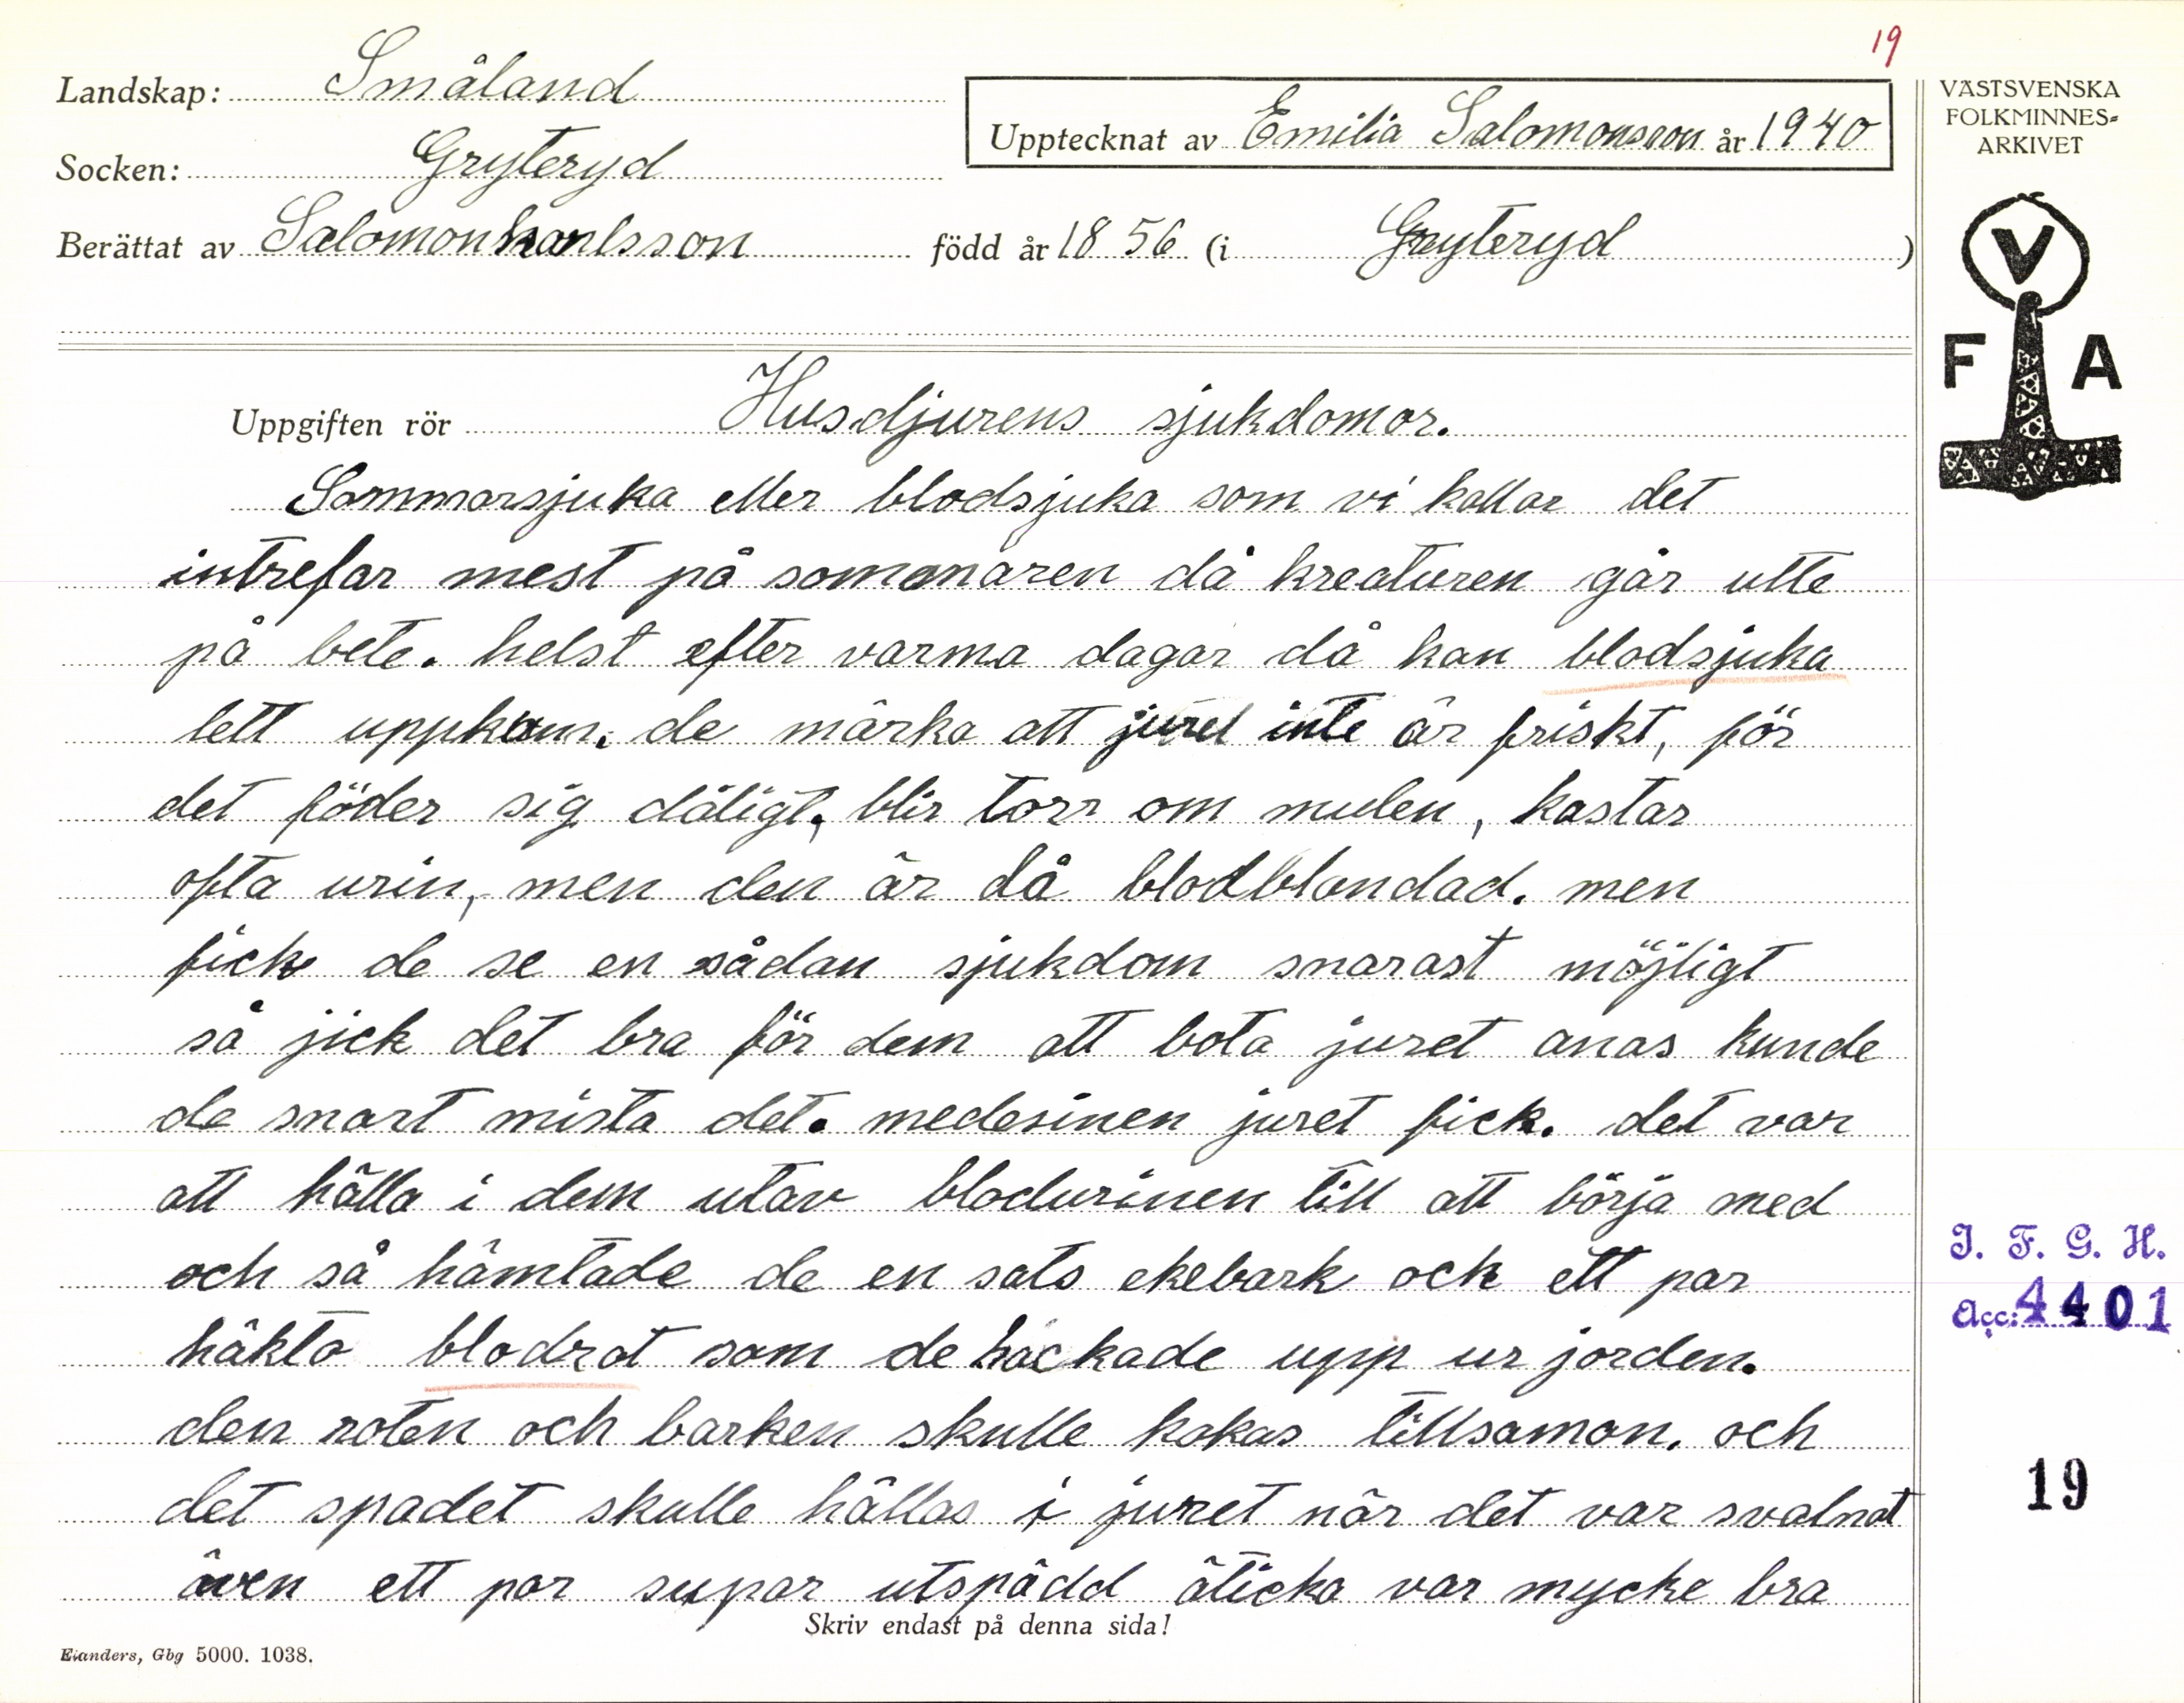 19
Landskap: Småland
Socken: Gryteryd
Berättat av Salomon karlsson född år 1856 (i Gryteryd)
Upptecknat av Emilia Salomonsson år 1940
VÄSTSVENSKA
FOLKMINNES-
ARKIVET
V
F A
Uppgiften rör Husdjurens sjukdomar.
Sommarsjuka eller blodsjuka som vi kallar det
intrefar mest på sommaren då kreaturen går utte
på bete. helst efter varma dagar då kan blodsjuka
lett uppkom. de märka att juret inte är friskt, för
det föder sig dåligt, blir torr om mulen, kastar
ofta urin, men den är då blodblandad. men
fick de se en sådan sjukdom snarast möjligt
så jick det bra för dem att bota juret anas kunde
de snart mista det. medesinen juret fick. det var
att hälla i dem utav blodurinen till att börja med
och så hämtade de en sats ekebark och ett par
häkto blodrot som de hackade upp ur jorden.
den roten och barken skulle kokas tillsaman. och
det spadet skulle hällas i juret når det var svalnat
även ett par supar utspädd äticka var mycke bra
Skriv endast på denna sida!
Elanders, Gbg 5000. 1038.
I. F. G. H.
Acc: 4401
19